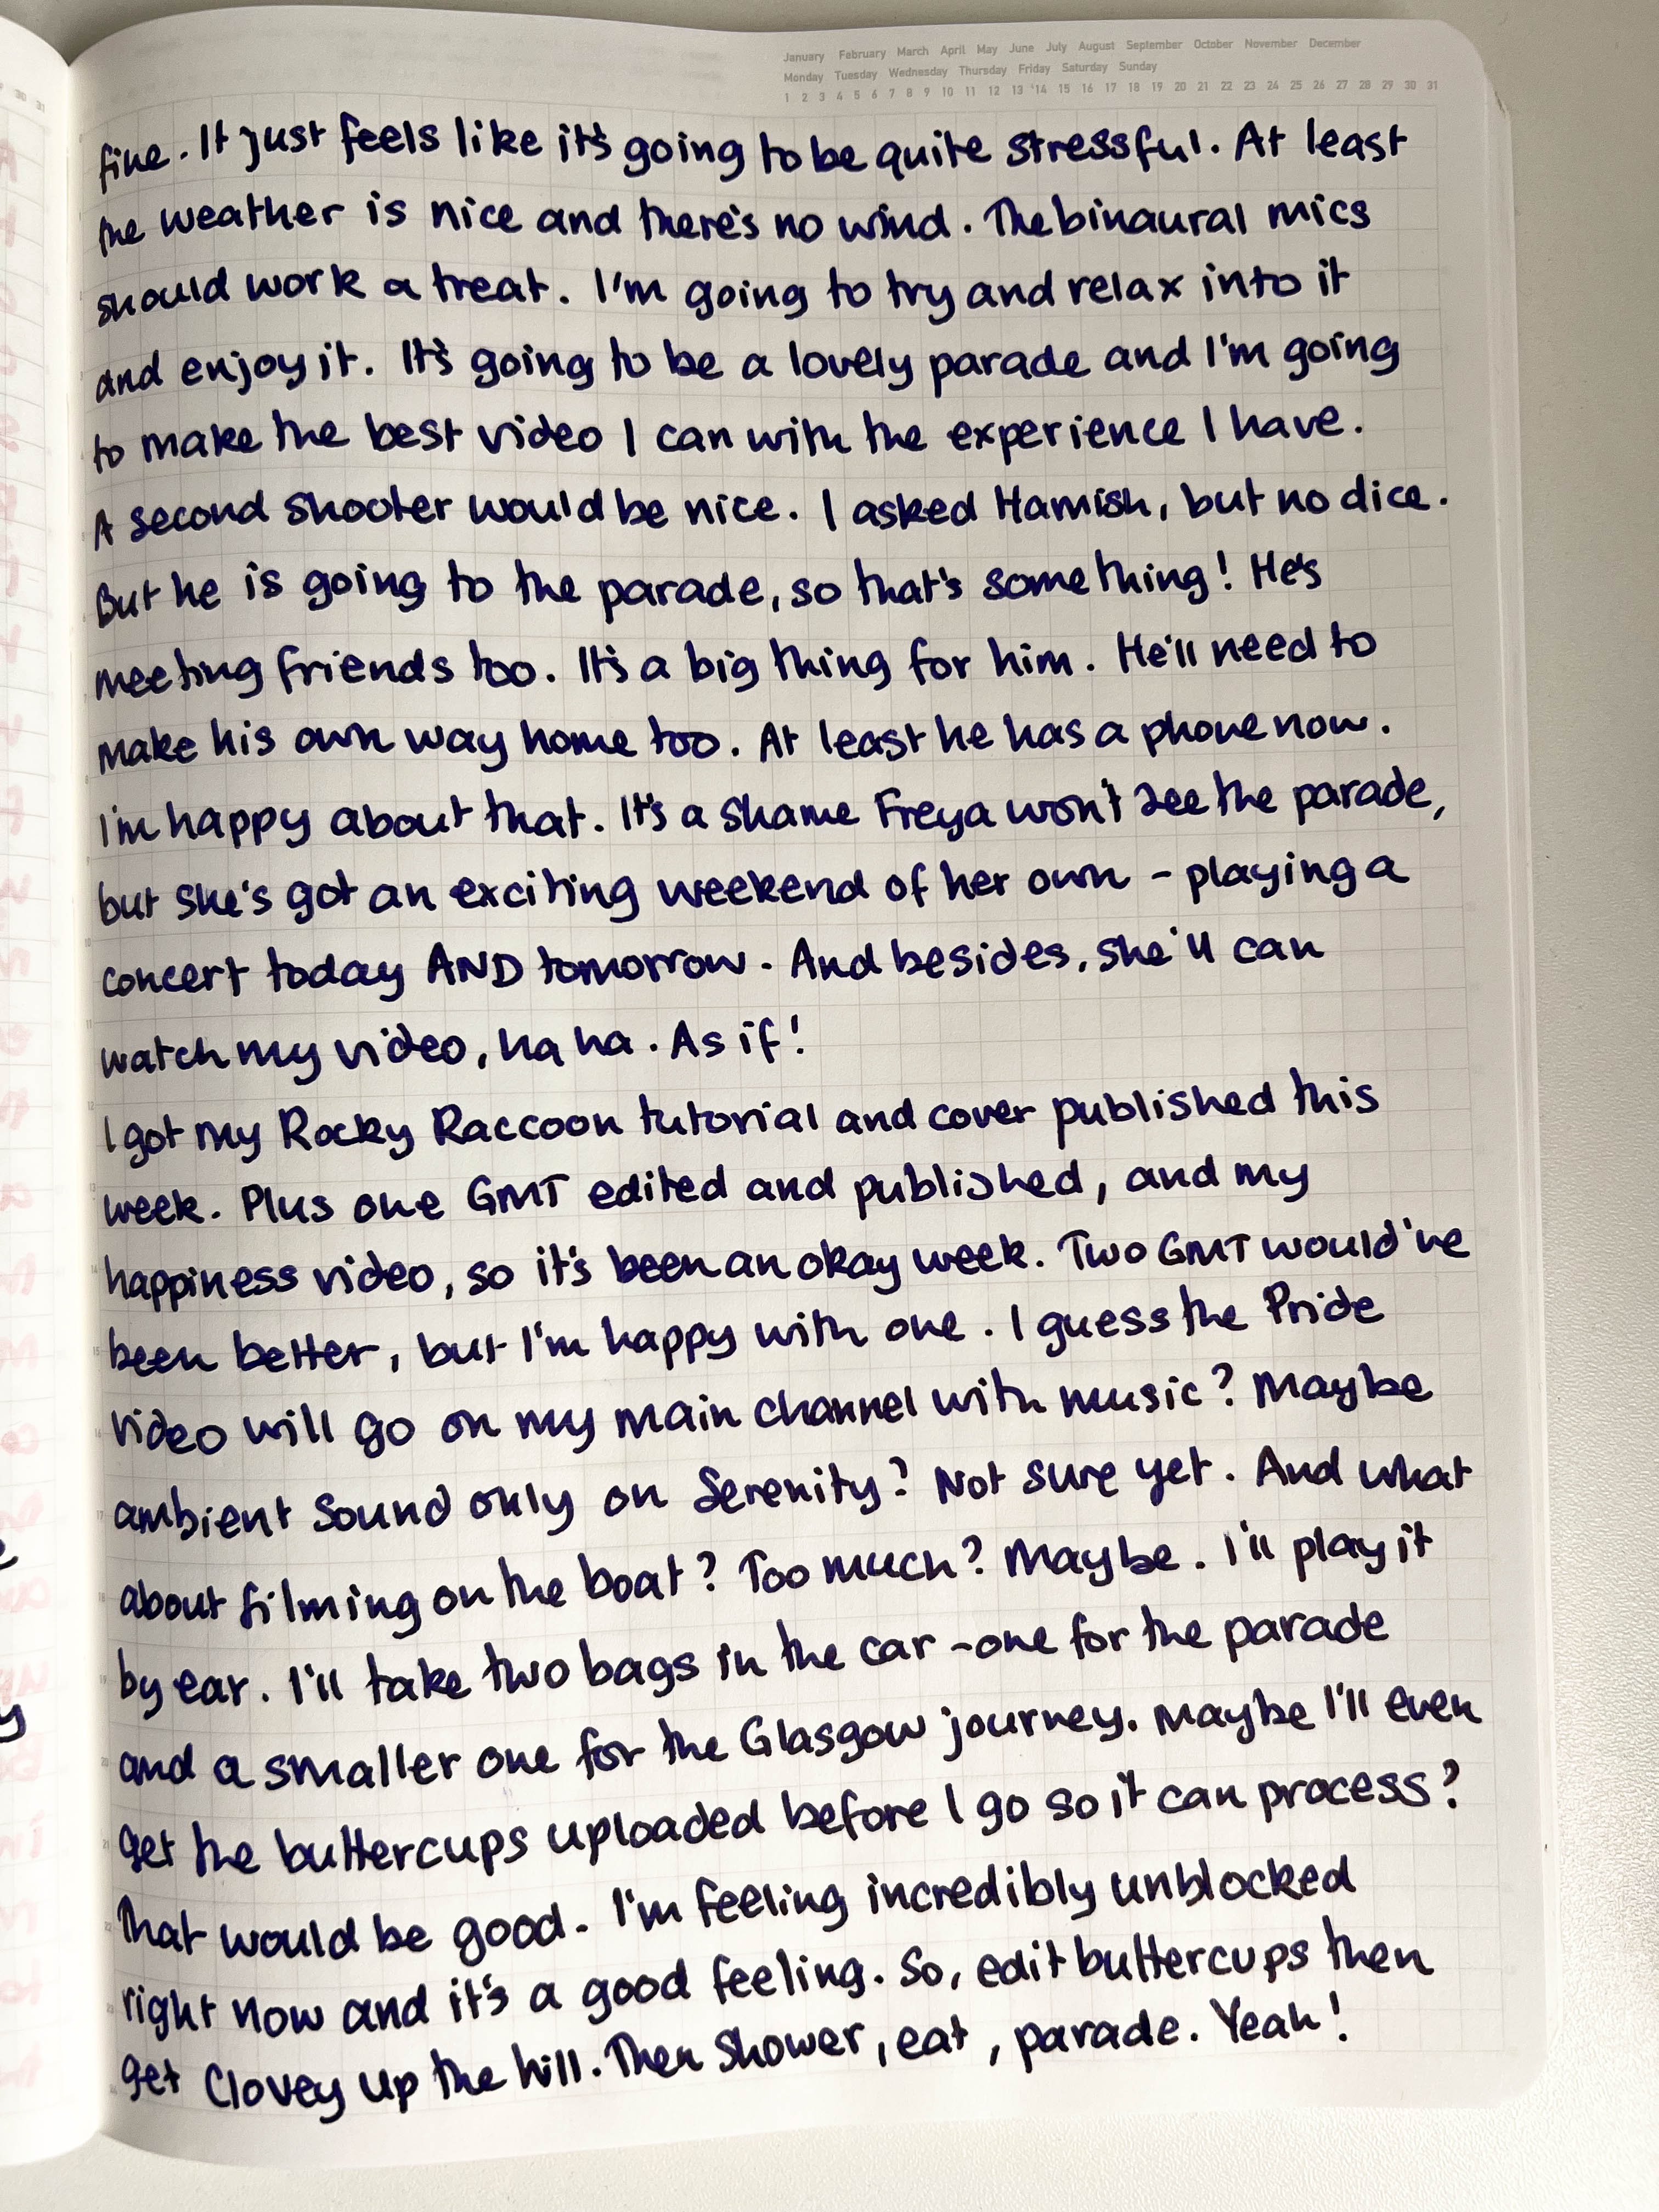 January February March April May June July August September October November December
Monday Tuesday Wednesday Thursday Friday Saturday Sunday
1 2 3 4 5 6 7 8 9 10 11 12 13 14 15 16 17 18 19 20 21 22 23 24 25 26 27 28 29 30 31
fine. It just feels like it's going to be quite stressful. At least
the weather is nice and there's no wind. The binaural mics
should work a treat. I'm going to try and relax into it
and enjoy it. It's going to be a lovely parade and I'm going
to make the best video I can with the experience I have.
A second shooter would be nice. I asked Hamish, but no dice.
But he is going to the parade, so that's something! He's
meeting friends too. It's a big thing for him. He'll need to
make his own way home too. At least he has a phone now.
I'm happy about that. It's a shame Freya won't see the parade,
but she's got an exciting weekend of her own - playing a
concert today AND tomorrow. And besides, she'll can
watch my video, ha ha. As if!
I got my Rocky Raccoon tutorial and cover published this
week. Plus one GMT edited and published, and my
happiness video, so it's been an okay week. Two GMT would've
been better, but I'm happy with one. I guess the Pride
video will go on my main channel with music? Maybe
ambient sound only on Serenity? Not sure yet. And what
about filming on the boat? Too much? Maybe. I'll play it
by ear. I'll take two bags in the car - one for the parade
and a smaller one for the Glasgow journey. Maybe I'll even
get the buttercups uploaded before I go so it can process?
That would be good. I'm feeling incredibly unblocked
right now and it's a good feeling. So, edit buttercups then
get Clovey up the hill. Then shower, eat, parade. Yeah!